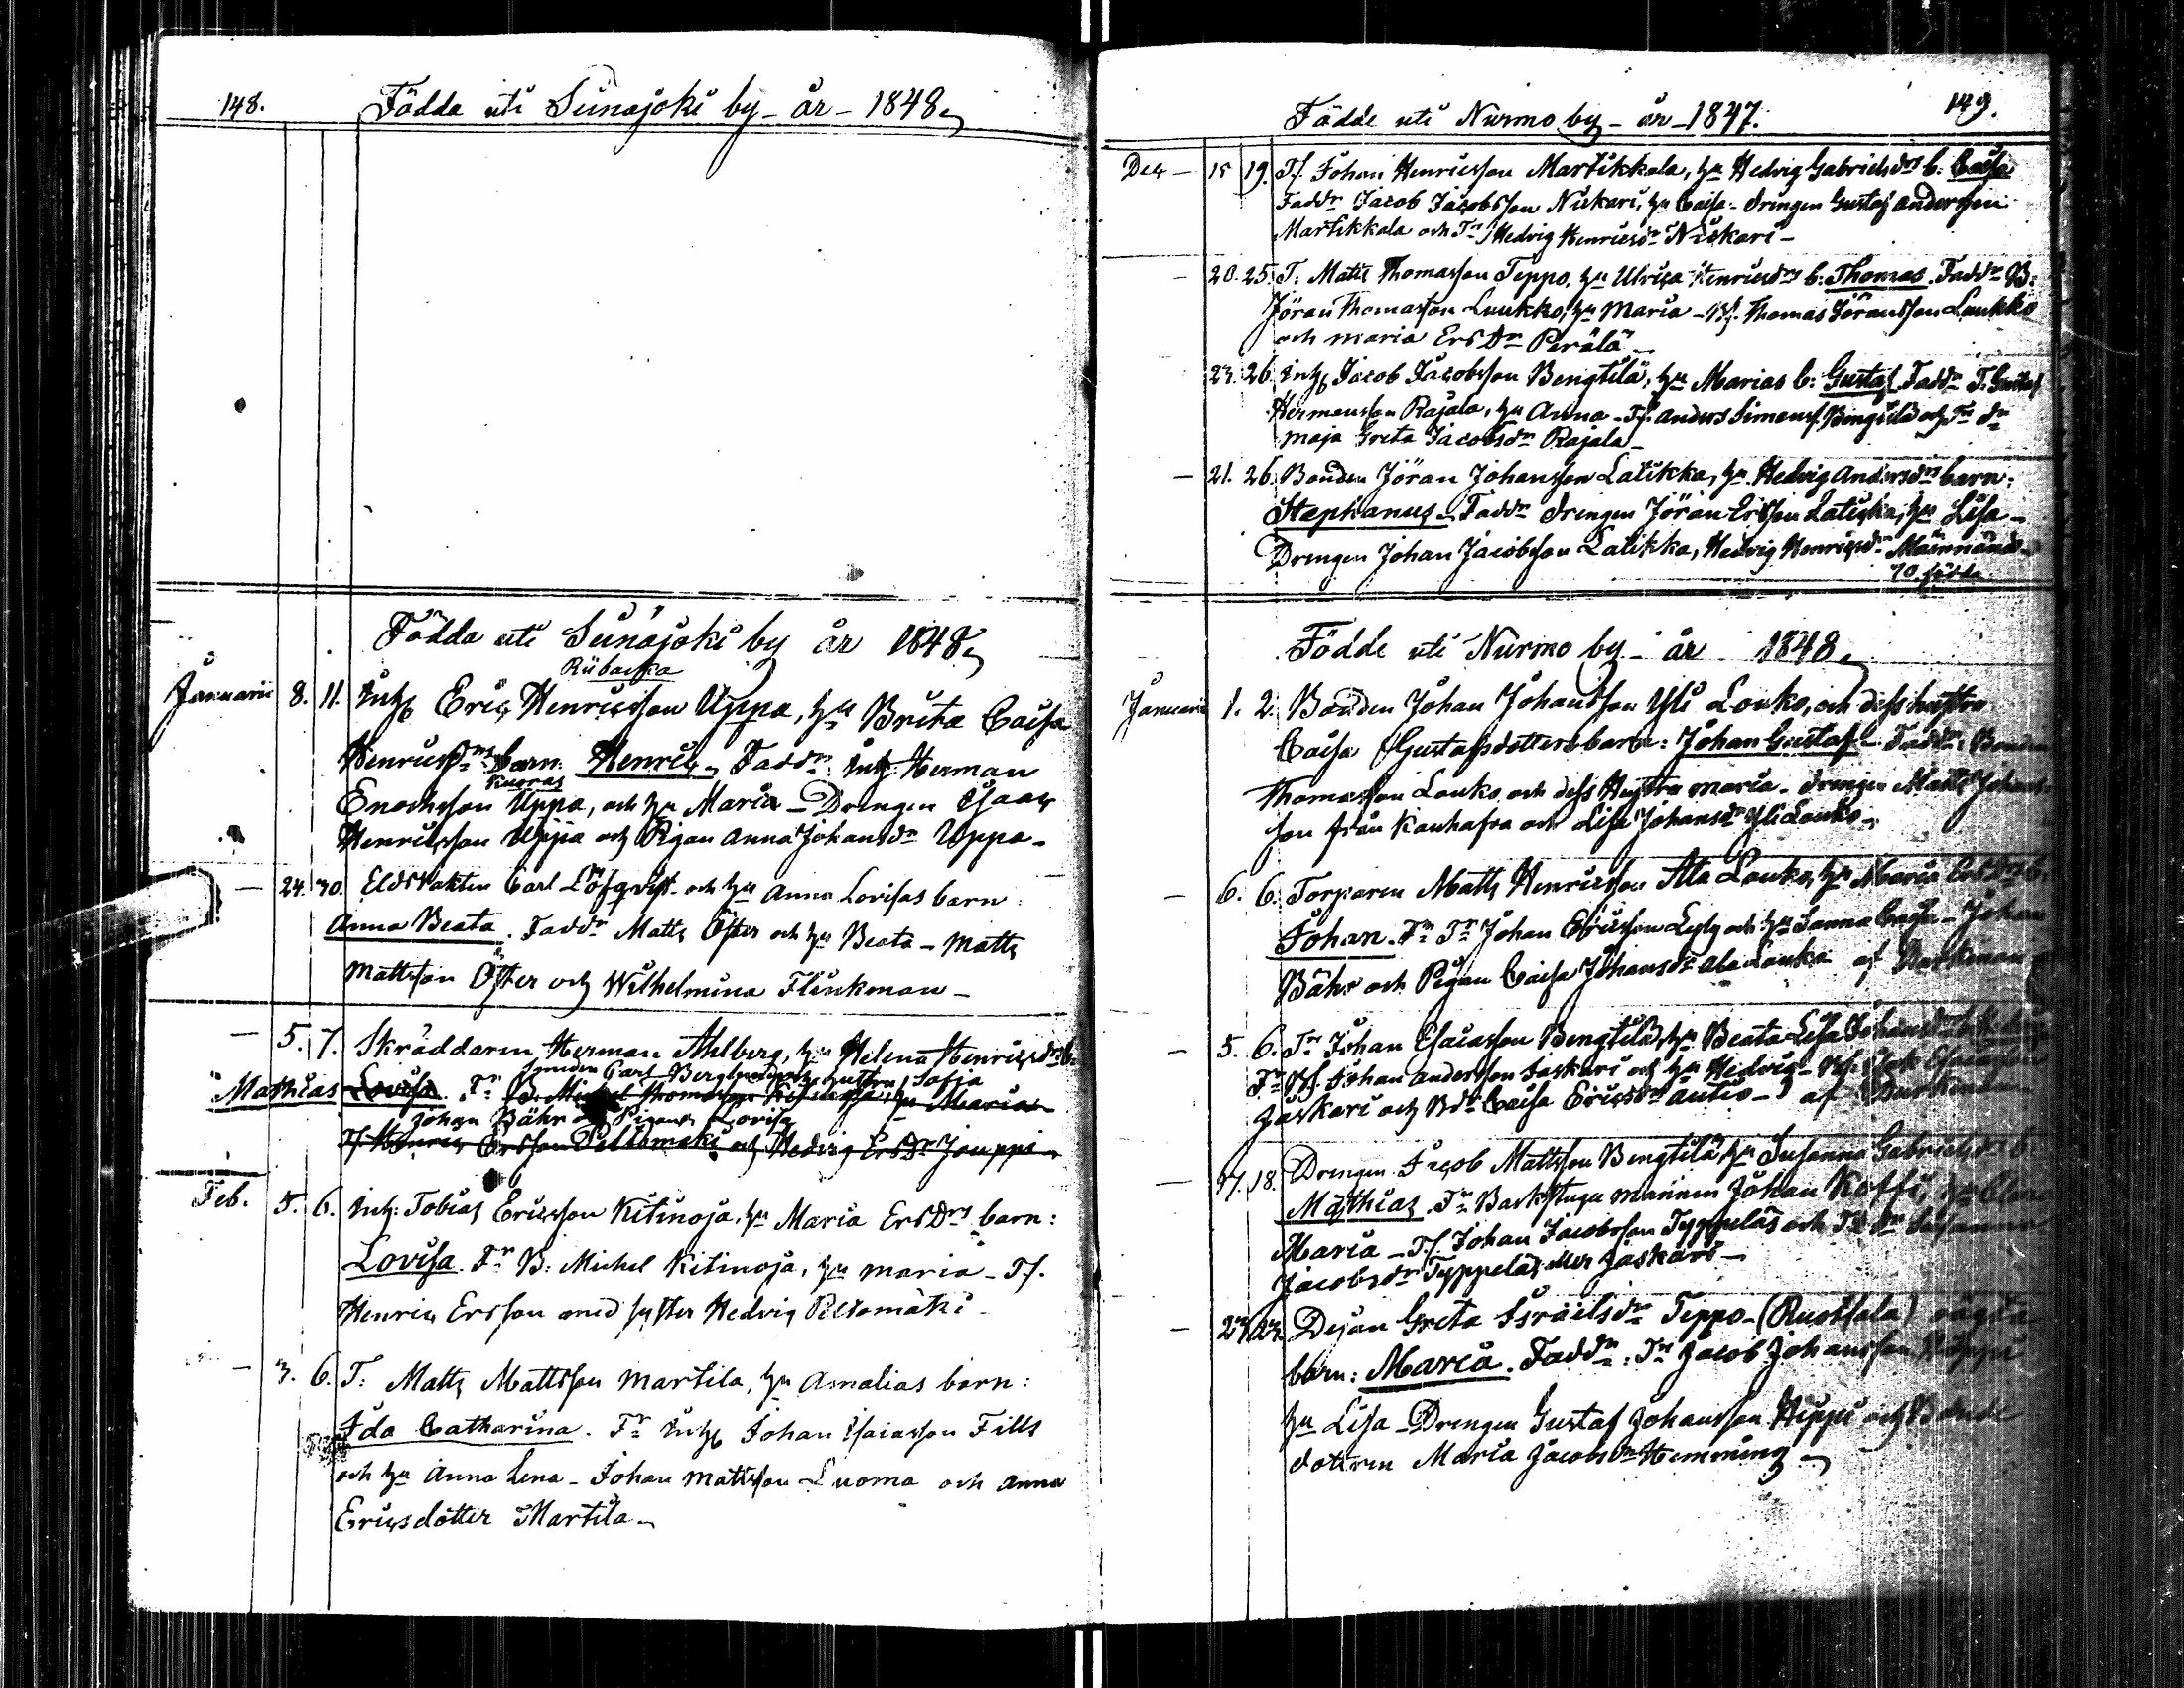 148.
Födda uti Seinäjoki by - år - 1848
Födda uti Seinäjoki by år 1848
Riibacka
Januarii 8. 11. Inhs Eric Henricsson Uppa, hu Brita Caisa
Henricsdrs barn: Henric. Faddr Inhs Herman
Kuoras
Enochsson Uppa, och hu Maria - Drengen Isaac
Henricsson Uppa och Pigan Anna Johansdr Uppa -
- 24. 30. Eldvakten Carl Löfqvist och hu Anna Lovisas barn:
Anna Beata. Faddr Matts Öster och hu Beata - Matts
Mattsson Öster och Wilhelmina Flinkman -
- 5. 7. Skräddaren Herman Ahlberg, hu Helena Henricsdrs b:
Smeden Carl Berglund och hustru Sofia
Mathias Lovisa. Fr B. Michel Thomasson Kitinoja, hu Maria -
Johan Bähr Pigan Lovisa
Tf Henric Ersson Peldomäki och Hedvig Ersdr Jouppi -
Feb. 5. 6. Inh: Tobias Ericsson Kitinoja, hu Maria Ersdrs barn:
Lovisa. Fr B: Michel Kitinoja, hu Maria - Tf.
Henric Ersson med syster Hedvig Peldomäki -
- 3. 6. T: Matts Mattsson Martila, hu Amalias barn:
Ida Catharina. Fr Inhs Johan Isaiasson Fills
och hu Anna Lena - Johan Mattsson Luoma och Anna
Ericsdotter Martila -
149.
Födde uti Nurmo by - år - 1847.
Dec - 15 19. Tf. Johan Henricsson Martikkala, hu Hedvig Gabrielsdrs b: Caisa
Faddr Jacob Jacobsson Niskari, hu Caisa - Drengen Gustaf Andersson
Martikkala och Tr Hedvig Henricsdr Niskari -
- 20. 25. T: Matts Thomasson Teppo, hu Ulrica Henricsdrs b: Thomas. Faddr B:
Jöran Thomasson Luukko, hu Maria - Bf. Thomas Jöransson Luukko
och Maria Ersdr Perälä -
23. 26. Inhs Jacob Jacobsson Bengtilä, hu Marias b: Gustaf. Faddr T: Gustaf
Hermansson Rajala, hu Anna - Tf. Anders Simonss. Bengtilä och Tr dr
Maja Greta Jacobsdr Rajala -
- 21. 26. Bonden Jöran Johansson Latikka, hu Hedvig Andersdrs barn:
Stephanus. Faddr Drengen Jöran Ersson Latikka, hu Lisa -
Drengen Johan Jacobsson Latikka, Hedvig Henricsdr
70 födda
Födde uti Nurmo by - år 1848
Januarii 1. 2. Bonden Johan Johansson Yli Louko, och dess hustru
Caisa Gustafsdotters barn: Johan Gustaf - Faddr: Bonden
Thomasson Louko och dess Hustru Maria - drengen Matts Johans
son från Kauhafva och Lisa Johansdr Yli Louko -
- 6. 6. Torparen Matts Henricsson Ala Louko, hu Maria Ersdrs b:
Johan. Fr Tr Johan Ericsson Lyly och hu Sanna Caisa - Johan
Bähr och Pigan Caisa Johansdr Ala Louko af
- 5. 6. Tr Johan Esaiasson Bengtilä, hu Beata Lisa
Fr Bf. Johan Andersson Jaskari och hu Hedvig -
Jaskari och Bdr Caisa Ericsdr Autio - af
- 17. 18. Drengen Jacob Mattsson Bengtilä, hu Susanna Gabrielsdrs b:
Mathias. Fr Backstugu mannen Johan Koffi,
Maria - Tf. Johan Jacobsson Typpelä och Tr dr Susanna
Jacobsdr Typpelä eller Jaskari -
- 23. 23. Dejan Greta Israelsdr Teppo - (Ruotsala) oägta
barn: Maria. Faddr: Tr Jacob Johansson Hippi
hu Lisa - Drengen Gustaf Johansson Hippi och Bonde
dottren Maria Jacobsdr Hemming -